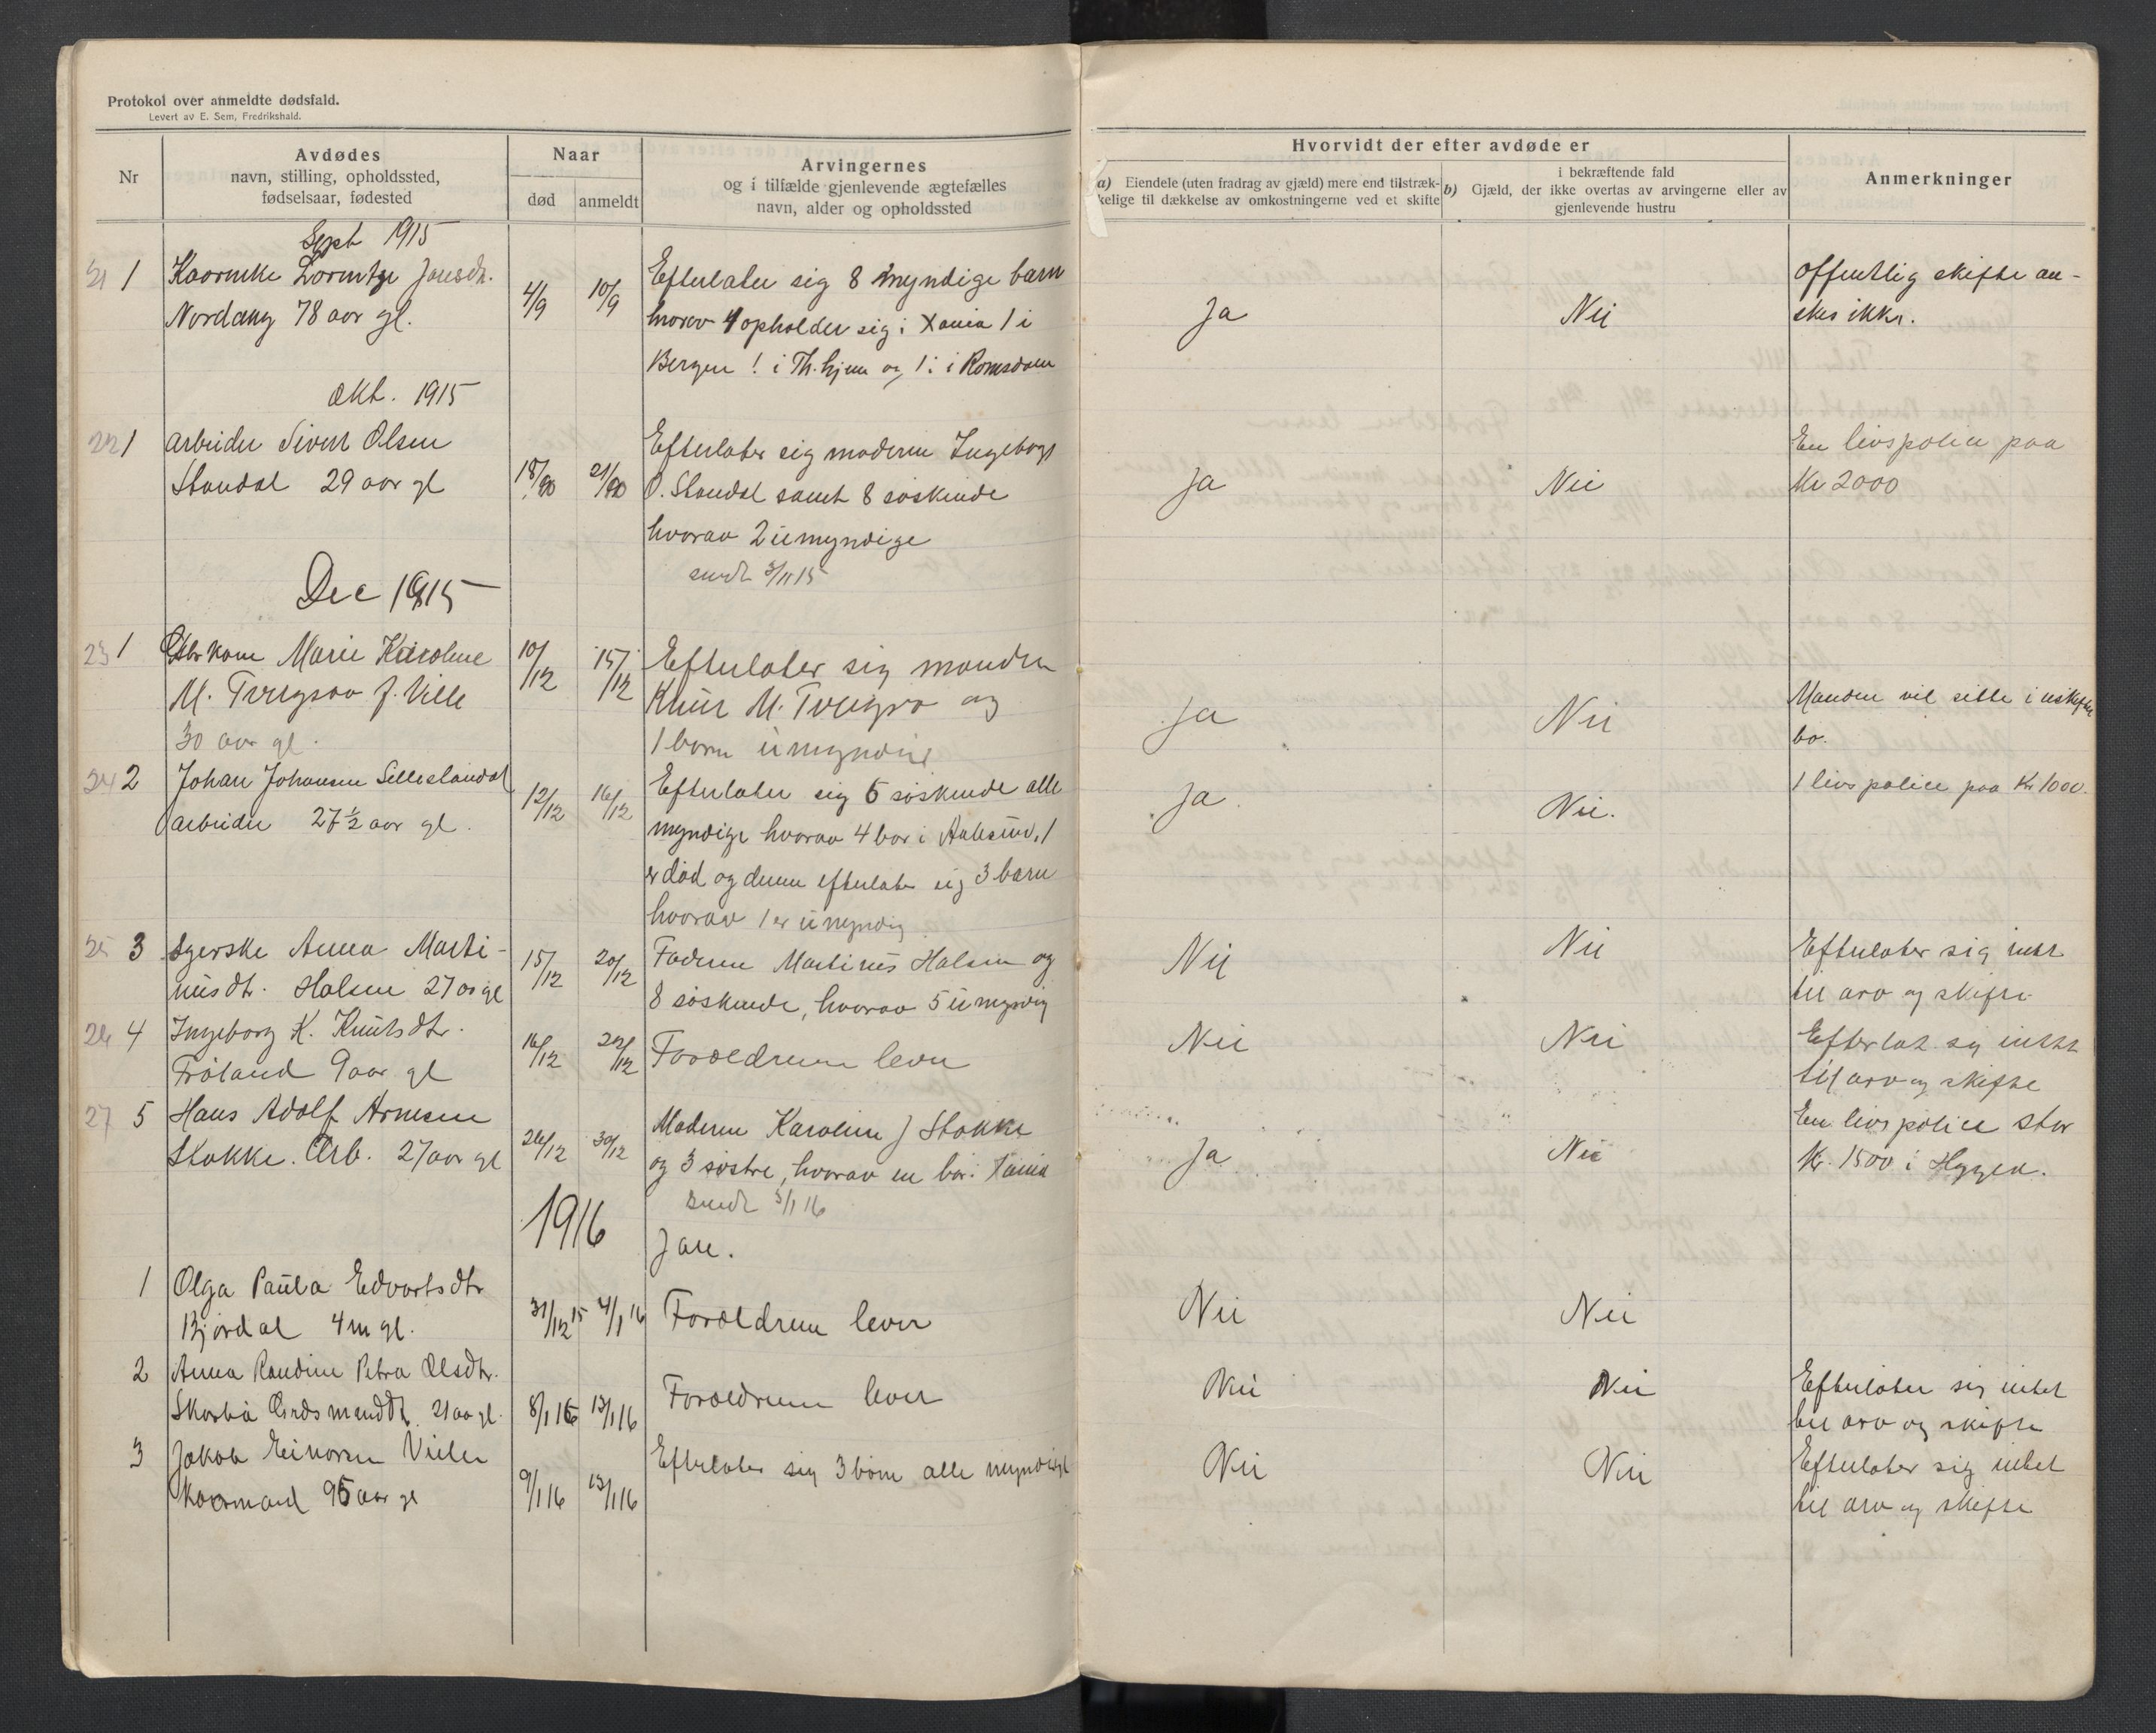 Protokol over anmeldte dødsfald.
Levert av E. Sem, Fredrikshald.
Nr
Avdødes
navn, stilling, opholdssted,
fødselsaar, fødested
Naar
død
anmeldt
Arvingernes
og i tilfælde gjenlevende ægtefælles
navn, alder og opholdssted
Hvorvidt der efter avdøde er
a) Eiendele (uten fradrag av gjæld) mere end tilstræk-
kelige til dækkelse av omkostningerne ved et skifte
i bekræftende fald
b) Gjæld, der ikke overtas av arvingerne eller av
gjenlevende hustru
Anmerkninger
Sept 1915
21 1 Kaarmke Jonsdr.
Nordang 78 aar gl.
4/9 10/9
Efterlater sig 8 myndige barn
hvorav 4 opholder sig i Xania 1 i
Bergen 1 i Th.hjem og 1 i Romsdalen
Ja
Nei
Offentlig skifte øn-
skes ikke.
Okt. 1915
22 1 Arbeider Sivert Olsen
Standal 29 aar gl
18/10 21/10
Efterlater sig moderen Ingeborg
O. Standal samt 8 søskende
hvorav 2 umyndige
sendt 3/11 15
Ja
Nei
En livspolice paa
Kr 2000
Dec 1915
23 1 Gbr kone Marie Karoline
M. f. Ville
30 aar gl.
10/12 15/12
Efterlater sig manden
Knut M. og
1 barn umyndig
Ja
Nei
Manden vil sitte i uskiftet
bo.
24 2 Johan Johansen Sellestandal
arbeider 27 1/2 aar gl.
12/12 16/12
Efterlater sig 6 søskende alle
myndige hvorav 4 bor i Aalesund, 1
er død og denne efterlater sig 3 barn
hvorav 1 er umyndig
Ja
Nei.
1 livspolice paa Kr 1000.
25 3 Syerske Anna Marti-
nusdtr. Halsen 27 aar gl
15/12 20/12
Faderen Martinus Halsen og
8 søskende, hvorav 5 umyndig
Nei
Nei
Efterlater sig intet
til arv og skifte
26 4 Ingeborg K. Knutsdtr.
Frøland 9 aar gl
16/12 22/12
Forældrene lever
Nei
Nei
Efterlat. sig intet
til arv og skifte
27 5 Hans Adolf Arnesen
Stokke. Arb. 27 aar gl
26/12 30/12
Moderen Karoline J Stokke
og 3 søstre, hvorav en bor i Xania
sendt 3/1 16
Ja
Nei
En livspolice stor
Kr. 1500 i Hygea.
1916
Jan.
1 Olga Paula Edvartsdtr
Bjørdal 4 m gl.
31/12 15 4/1 16
Forældrene lever
Nei
Nei
2 Anna Randine Petra Olsdtr.
21 aar gl.
8/1 16 13/1 16
Forældrene lever
Nei
Nei
Efterlater sig intet
til arv og skifte
3 Jakob Viller
Kaarmand 95 aar gl
9/1 16 13/1 16
Efterlater sig 3 barn alle myndige
Nei
Nei
Efterlater sig intet
til arv og skifte